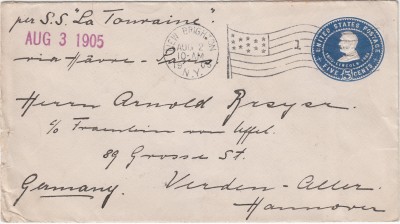 per S.S. "La Touraine".
AUG 3 1905
via Hâvre - Paris
NEW BRIGHTON
AUG 2
10-AM
N.Y.
1
UNITED STATES POSTAGE
LINCOLN
5
FIVE CENTS
Herrn Arnold Breyer.
c/o Fraeulein von Uffel.
89 Grosse St.
Germany. Verden-Aller.
Hannover